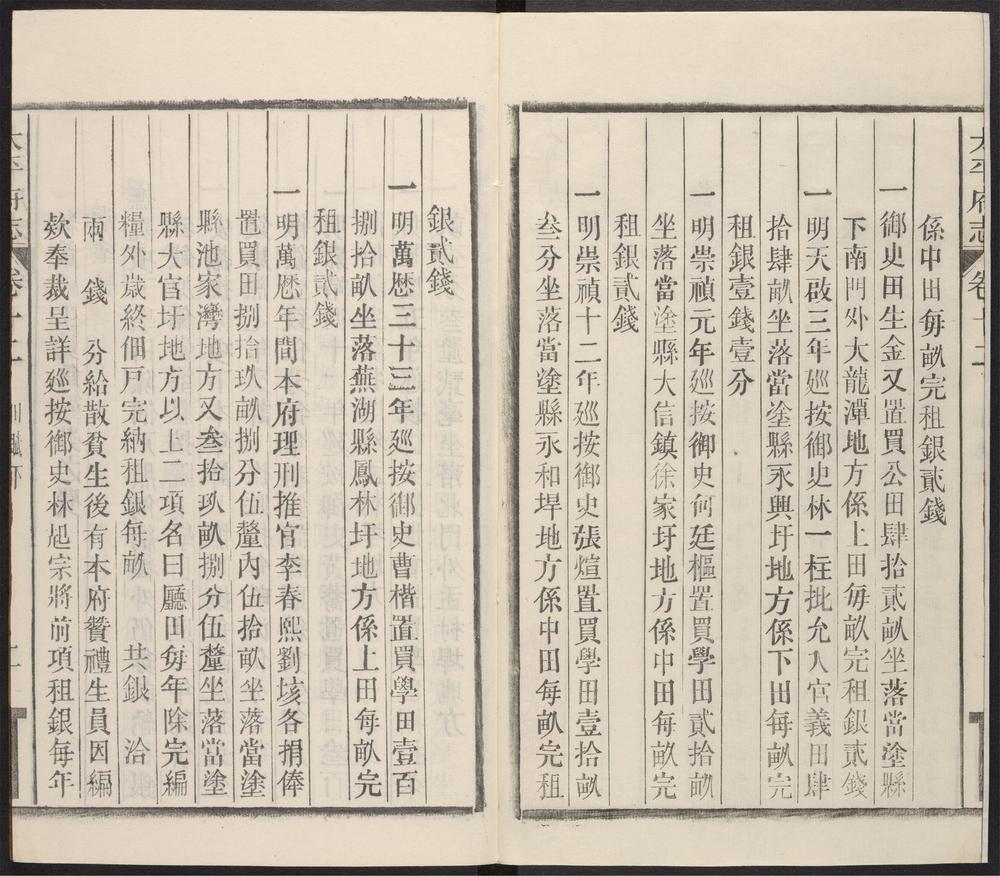 太平府志 卷十二
係中田毎畝完租銀貳錢
一御史田生金又置買公田肆拾貳畝坐落當塗縣
下南門外大龍潭地方係上田毎畝完租銀貳錢
一明天啟三年廵按御史林一柱批允入官義田肆
拾肆畝坐落當塗縣永興圩地方係下田毎畝完
租銀壹錢壹分
一明崇禎元年廵按御史何廷樞置買學田貳拾畝
坐落當塗縣大信鎮徐家圩地方係中田毎畝完
租銀貳錢
一明崇禎十二年廵按御史張煊置買學田壹拾畝
叁分坐落當塗縣永和垾地方係中田每畝完租
銀貳錢
一明萬曆三十三年廵按御史曹楷置買學田壹百
捌拾畝坐落蕪湖縣鳳林圩地方係上田每畝完
租銀貳錢
一明萬歷年間本府理刑推官李春熙劉垓各捐俸
置買田捌拾玖畝捌分伍釐內伍拾畝坐落當塗
縣池家灣地方又叁拾玖畝捌分伍釐坐落當塗
縣大官圩地方以上二項名曰廳田每年除完編
糧外歲終佃戸完納租銀每畝 共銀 洽
兩 錢 分給散貧生後有本府贊禮生員因編
欸奉裁呈詳廵按御史林起宗將前項租銀每年
太平府志 卷十二